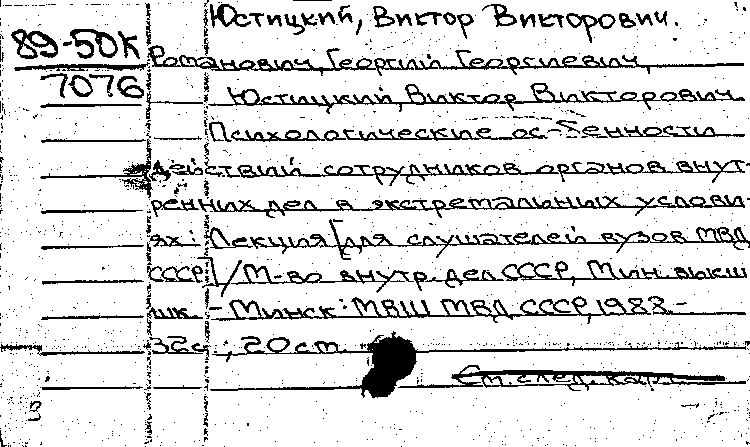 Юстицкий, Виктор Викторович.
89-50К Романович, Георгий Георгиевич,
7076 Юстицкий, Виктор Викторович
Психологические ос-бенности
действий сотрудников органов внут-
ренних дел в экстремальных услови-
ях: Лекция [для слушателей вузов МВД
СССР] / М-во внутр. дел СССР, Мин. высш
шк. - Минск: МВШ МВД СССР, 1988.-
32с.; 20 ст.
См. след. карт.
3